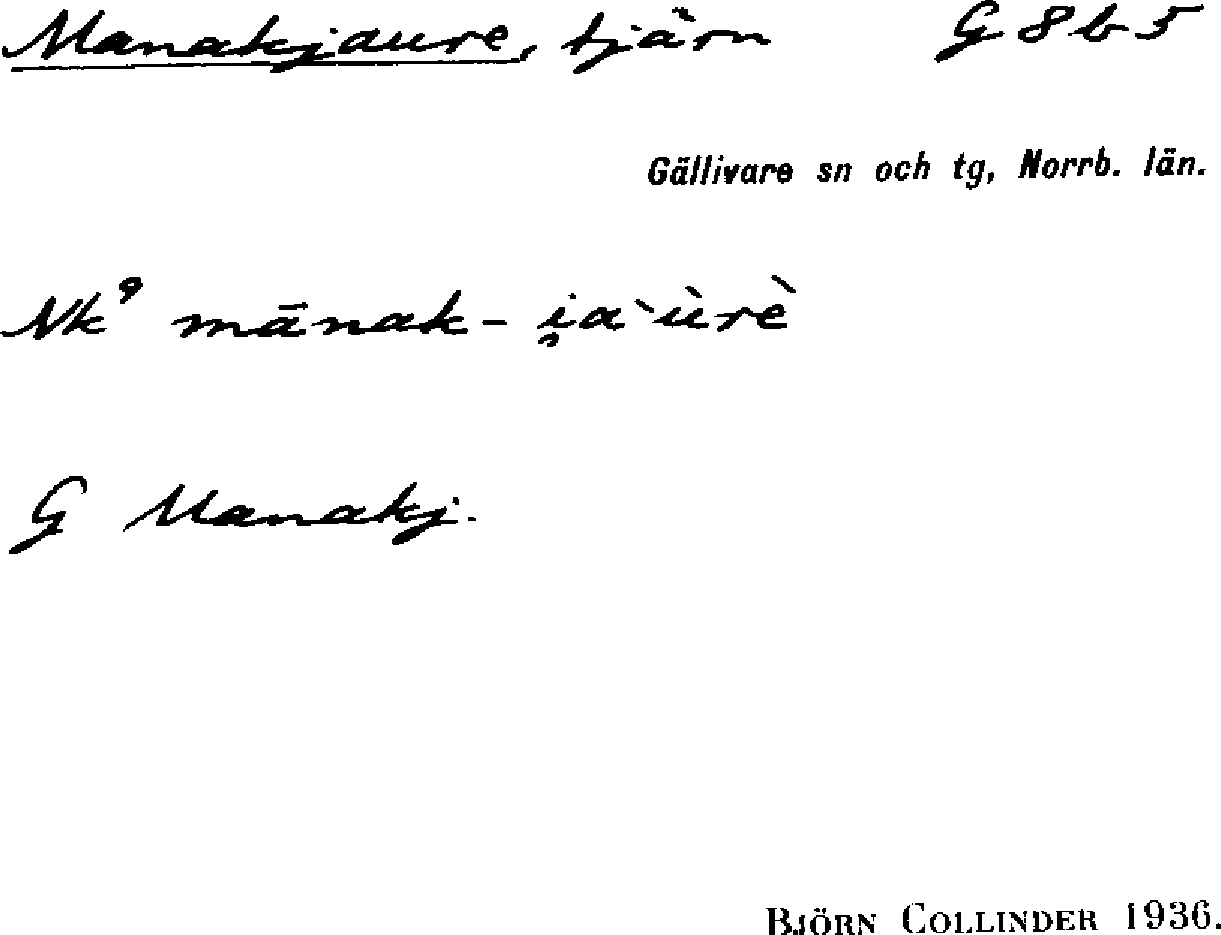 Manakjaure, tjärn G 8 b 5
Gällivare sn och tg, Norrb. län.
Nk⁹ mānak-i̯a`ùrè
G Manakj.
BJÖRN COLLINDER 1936.